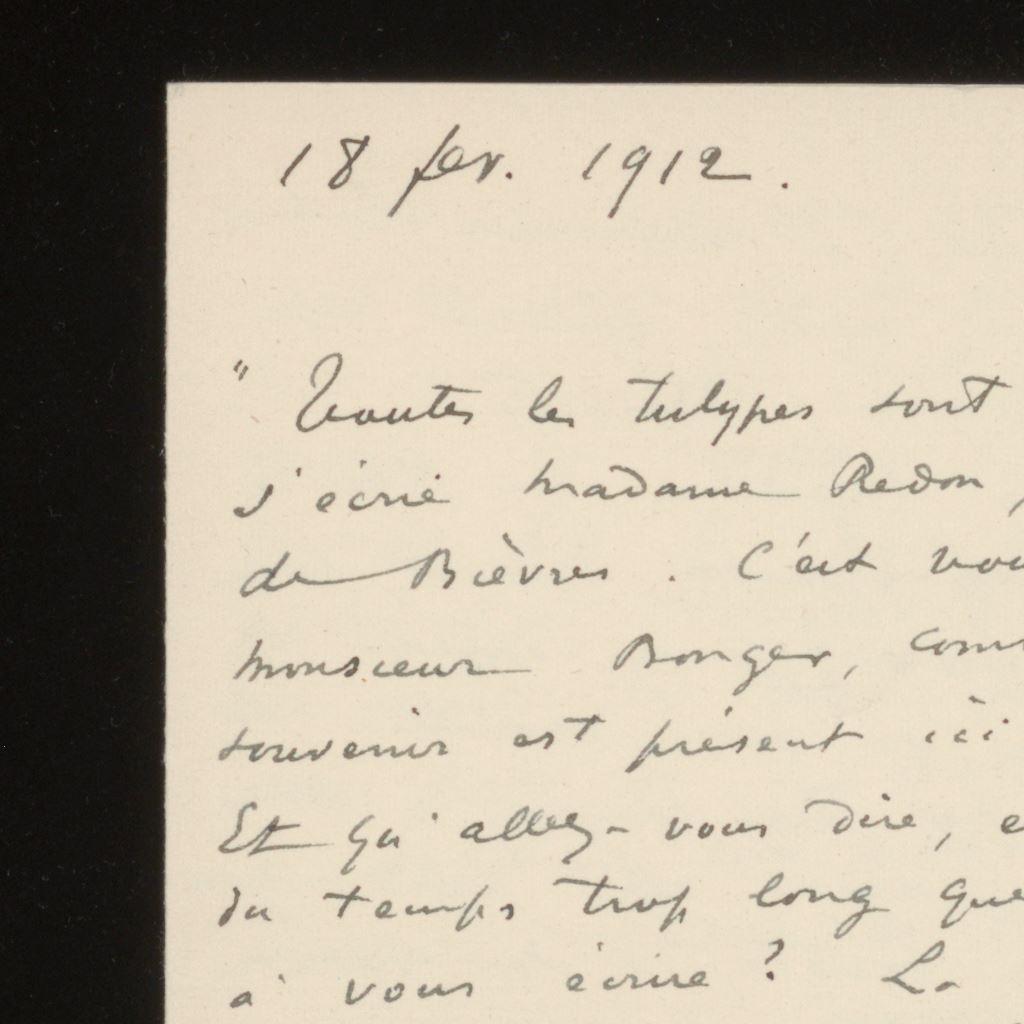 18 fev. 1912.
" Toutes les tulypes sont
s'écrie madame Redon,
de Bièvres. C'est vou
monsieur Bonger, com
souvenir est présent ici
Et qu'allez-vous dire, e
du temps trop long que
à vous écrire ? La